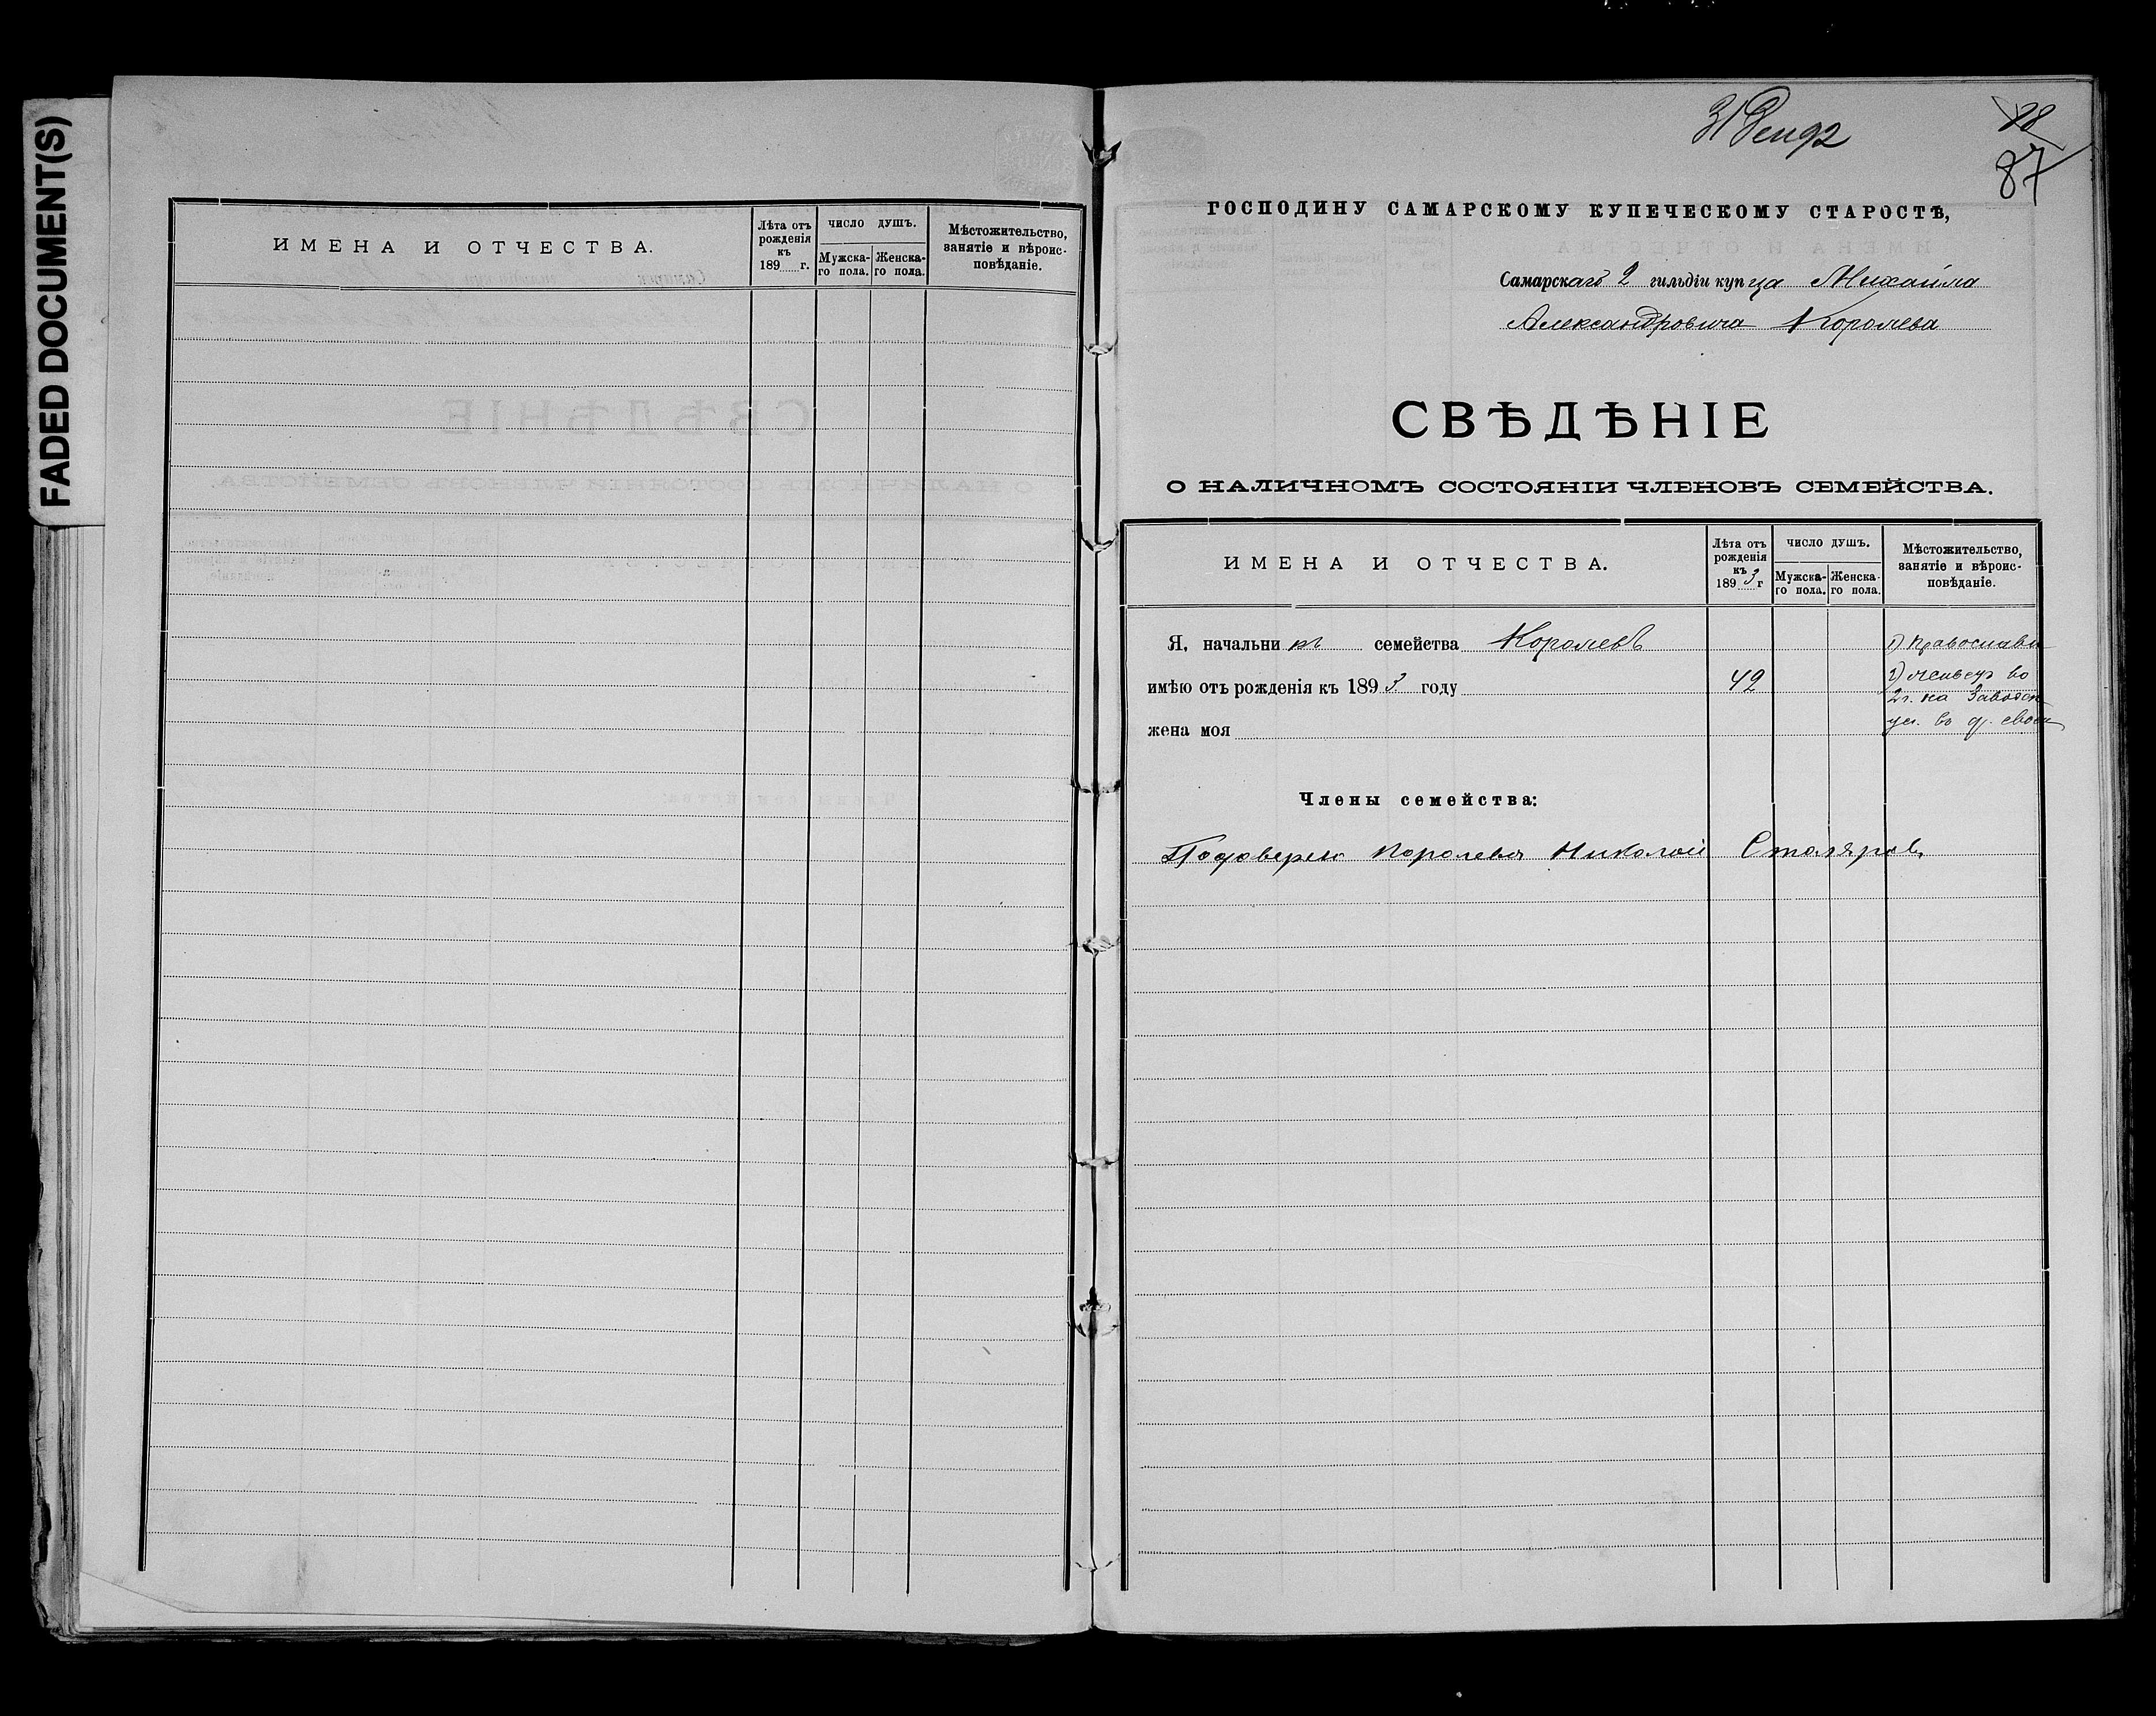 FADED DOCUMENT(S)
ИМЕНА И ОТЧЕСТВА.
Лѣта отъ рожденія къ 189 г.
ЧИСЛО ДУШЪ.
Мужска-го пола.
Женска-го пола.
Мѣстожительство, занятіе и вѣроис-повѣданіе.
31 92
88
87
ГОСПОДИНУ САМАРСКОМУ КУПЕЧЕСКОМУ СТАРОСТѢ,
Самарскаго 2 гильдіи купца Михаила
Александровича Королева
СВѢДѢНІЕ
О НАЛИЧНОМЪ СОСТОЯНІИ ЧЛЕНОВЪ СЕМЕЙСТВА.
ИМЕНА И ОТЧЕСТВА.
Лѣта отъ рожденія къ 1893 г
ЧИСЛО ДУШЪ.
Мужска-го пола.
Женска-го пола.
Мѣстожительство, занятіе и вѣроис-повѣданіе.
Я, начальникъ семейства Королевъ
1) Православн
имѣю отъ рожденія къ 1893 году 42
2) живетъ во
2 ч. на Заводск
ул. въ д. своем
жена моя
Члены семейства:
Королева Николай Столяровъ